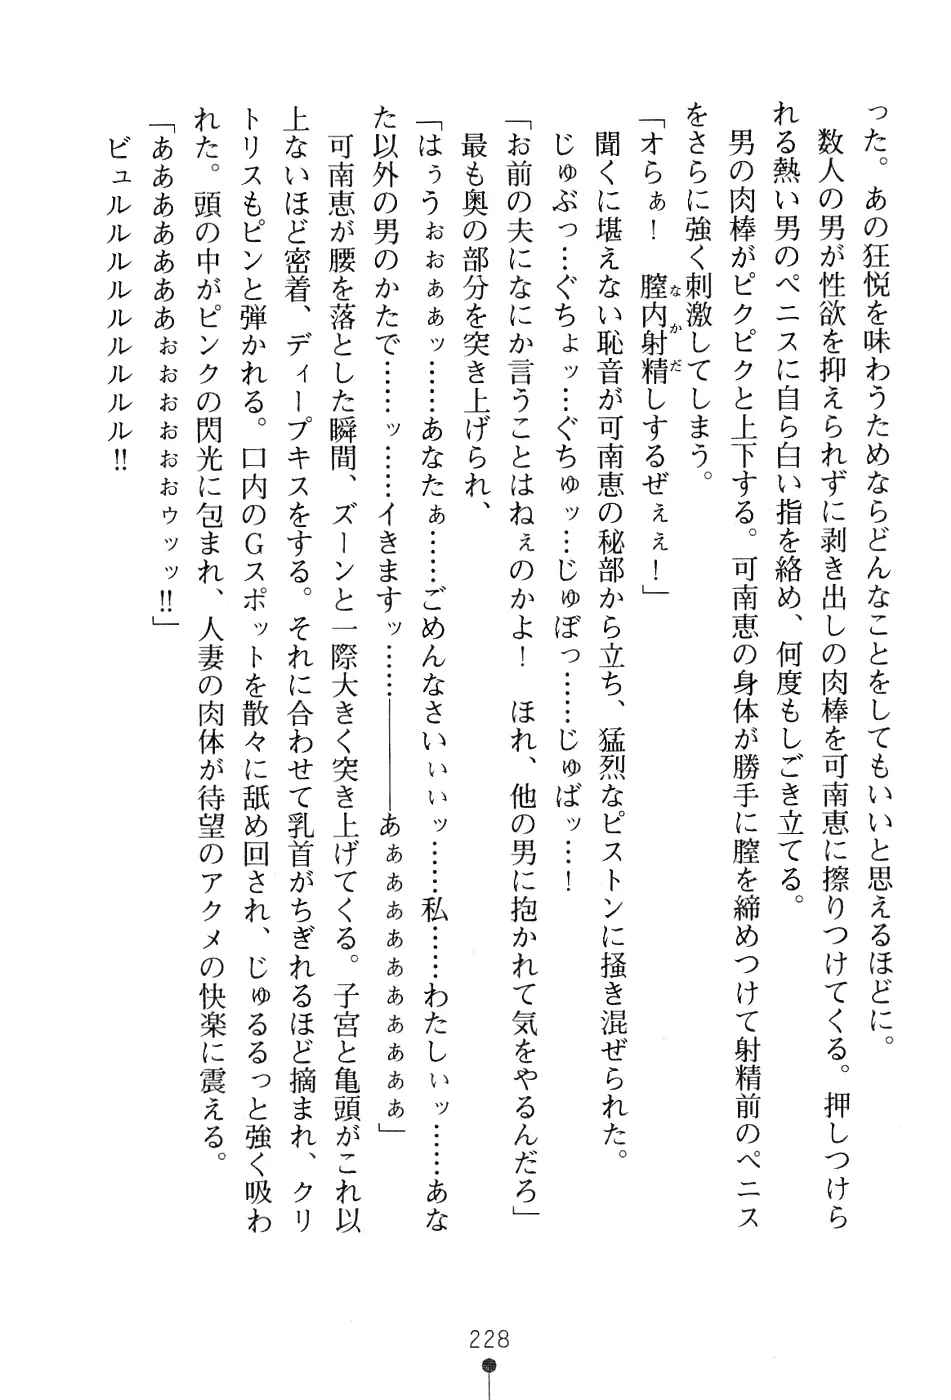 った。あの狂悦を味わうためならどんなことをしてもいいと思えるほどに。
数人の男が性欲を抑えられずに剥き出しの肉棒を可南恵に擦りつけてくる。押しつけら
れる熱い男のペニスに自ら白い指を絡め、何度もしごき立てる。
男の肉棒がピクピクと上下する。可南恵の身体が勝手に膣を締めつけて射精前のペニス
をさらに強く刺激してしまう。
「オらぁ！　膣内射精しするぜぇぇ！」
なかだ
聞くに堪えない恥音が可南恵の秘部から立ち、猛烈なピストンに掻き混ぜられた。
じゅぶっ…ぐちょッ…ぐちゅッ…じゅぼっ……じゅばッ…！
「お前の夫になにか言うことはねぇのかよ！　ほれ、他の男に抱かれて気をやるんだろ」
最も奥の部分を突き上げられ、
「はぅうぉぉぁぁッ……あなたぁ……ごめんなさいぃぃッ……私……わたしぃッ……あな
た以外の男のかたで……ッ……イきますッ……――――あぁぁぁぁぁぁぁぁぁぁ」
可南恵が腰を落とした瞬間、ズーンと一際大きく突き上げてくる。子宮と亀頭がこれ以
上ないほど密着、ディープキスをする。それに合わせて乳首がちぎれるほど摘まれ、クリ
トリスもピンと弾かれる。口内のGスポットを散々に舐め回され、じゅるるっと強く吸わ
れた。頭の中がピンクの閃光に包まれ、人妻の肉体が待望のアクメの快楽に震える。
「ああああああぉぉぉぉぉゥッッ!!」
ビュルルルルルルルル!!
228